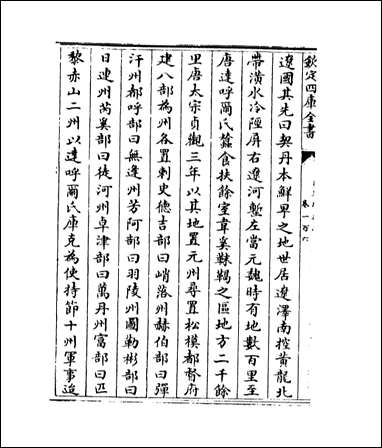 欽定四庫全書
卷一百六
遼國其先曰契丹本鮮卑之地世居遼澤南控黃龍北
帶潢水冷陘屏右遼河塹左當元魏時有地數百里至
唐達呼爾氏蠶食扶餘室韋奚靺鞨之區地方二千餘
里唐太宗貞觀三年以其地置元州尋置松模都督府
建八部為州各置刺史德吉部曰峭落州赫伯部曰彈
汗州都呼部曰無逢州芳阿部曰羽陵州圖勒彬部曰
日連州芮奚部曰徒河州卓津部曰萬丹州富部曰匹
黎赤山二州以達呼爾氏庫克為使持節十州軍事迨